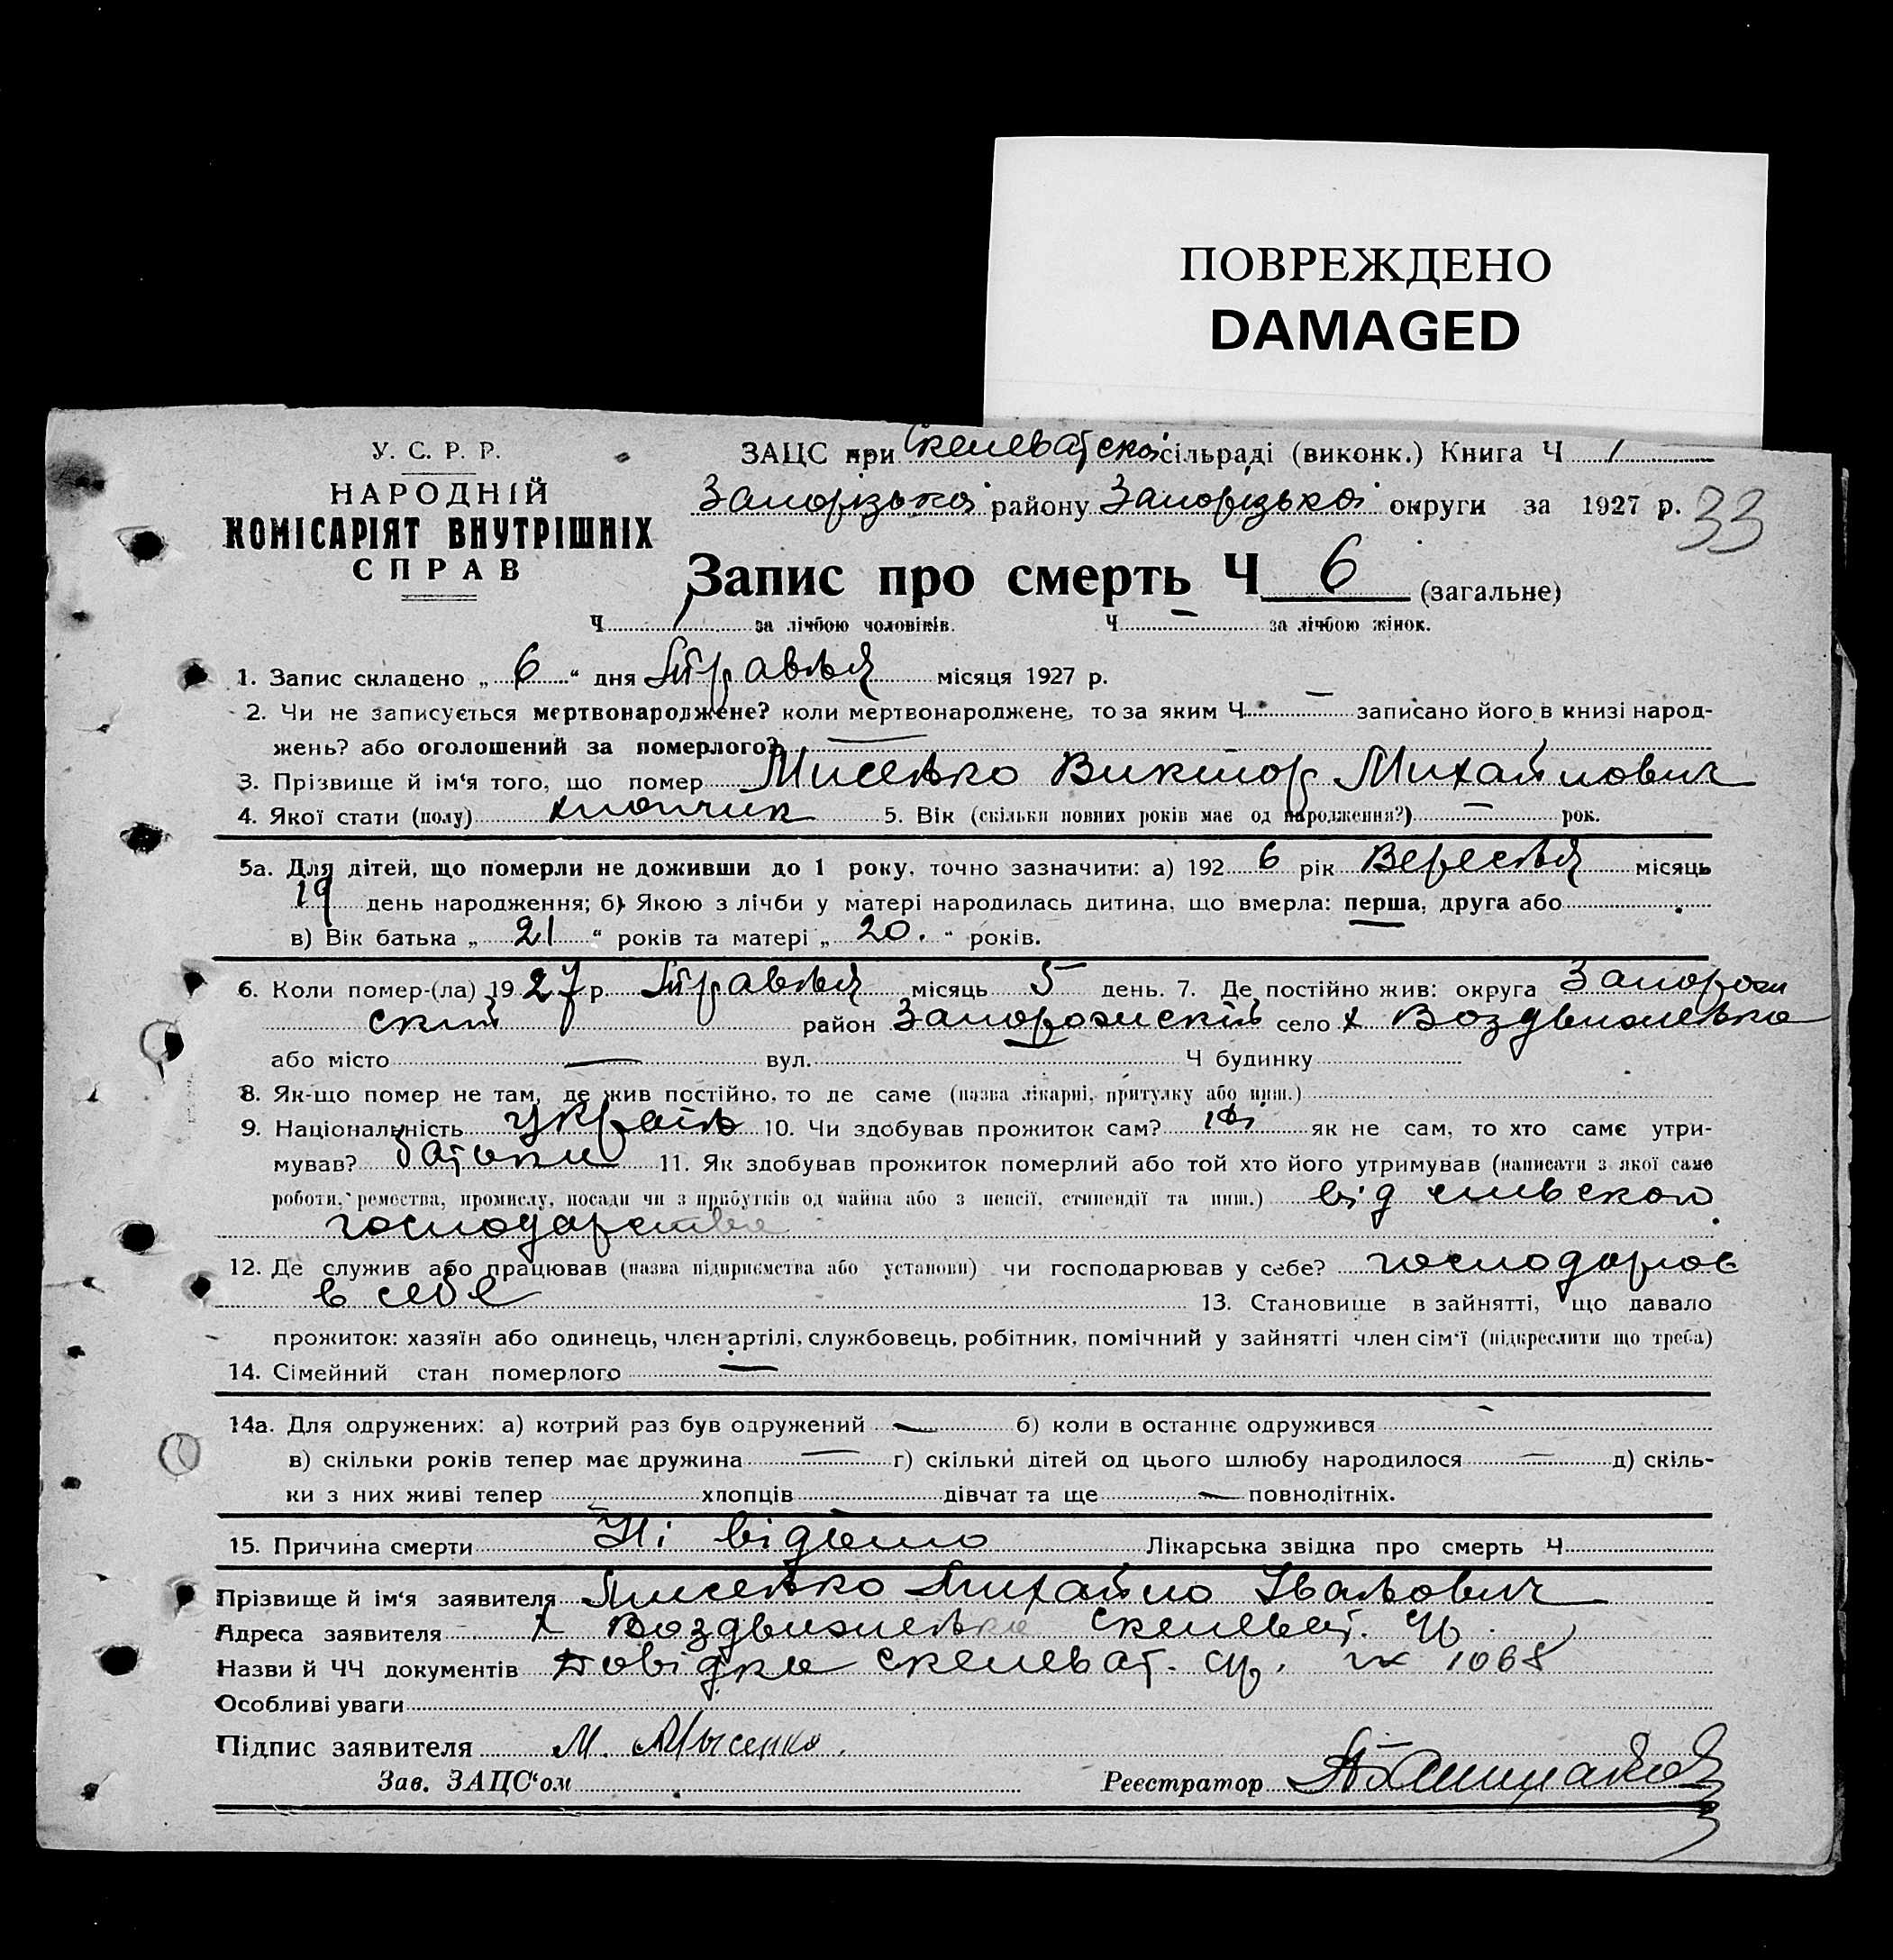 ПОВРЕЖДЕНО
DAMAGED
У. С. Р. Р.
НАРОДНІЙ
КОМІСАРІЯТ ВНУТРІШНІХ
СПРАВ
ЗАЦС при Скелеватской сільраді (виконк.) Книга Ч 1
Запорізької району Запорізької округи за 1927 р. 33
Запис про смерть Ч 6 (загальне)
Ч 1 за лічбою чоловіків. Ч — за лічбою жінок.
1. Запис складено „ 6 “ дня Травня місяця 1927 р.
2. Чи не записується мертвонароджене? коли мертвонароджене, то за яким Ч — записано його в книзі народ-
жень? або оголошений за померлого? —
3. Прізвище й ім‘я того, що помер Мисенко Виктор Михайлович
4. Якої стати (полу) хлопчик 5. Вік (скільки повних років має од народження?) — рок.
5а. Для дітей, що померли не доживши до 1 року, точно зазначити: а) 192 6 рік Вересня місяць
19 день народження; б) Якою з лічби у матері народилась дитина, що вмерла: перша, друга або
в) Вік батька „ 21 “ років та матері „ 20. “ років.
6. Коли помер-(ла) 19 27 р. Травня місяць 5 день. 7. Де постійно жив: округа Запорож
ский район Запорожский село х Воздвиженка
або місто — вул. Ч будинку
8. Як-що помер не там, де жив постійно, то де саме (назва лікарні, притулку або инш.)
9. Національність україн 10. Чи здобував прожиток сам? ні як не сам, то хто саме утри-
мував? батьки 11. Як здобував прожиток померлий або той хто його утримував (написати з якої саме
роботи, ремества, промислу, посади чи з прибутків од майна або з пенсії, стипендії та инш.) від сильского
господарства
12. Де служив або працював (назва підприємства або установи) чи господарював у себе? господарює
в себе 13. Становище в зайнятті, що давало
прожиток: хазяїн або одинець, член артілі, службовець, робітник, помічний у зайнятті член сім‘ї (підкреслити що треба)
14. Сімейний стан померлого —
14а. Для одружених: а) котрий раз був одружений — б) коли в останнє одружився —
в) скільки років тепер має дружина — г) скільки дітей од цього шлюбу народилося — д) скіль-
ки з них живі тепер — хлопців — дівчат та ще — повнолітніх.
15. Причина смерти Ні відомо Лікарська звідка про смерть Ч
Прізвище й ім‘я заявителя Мисенко Михайло Іванович
Адреса заявителя х Воздвиженка Скелеват. с/р
Назви й ЧЧ документів Довідка Скелеват. с/р. 1068
Особливі уваги
Підпис заявителя М. Мысенко.
Зав. ЗАЦС‘ом Реєстратор